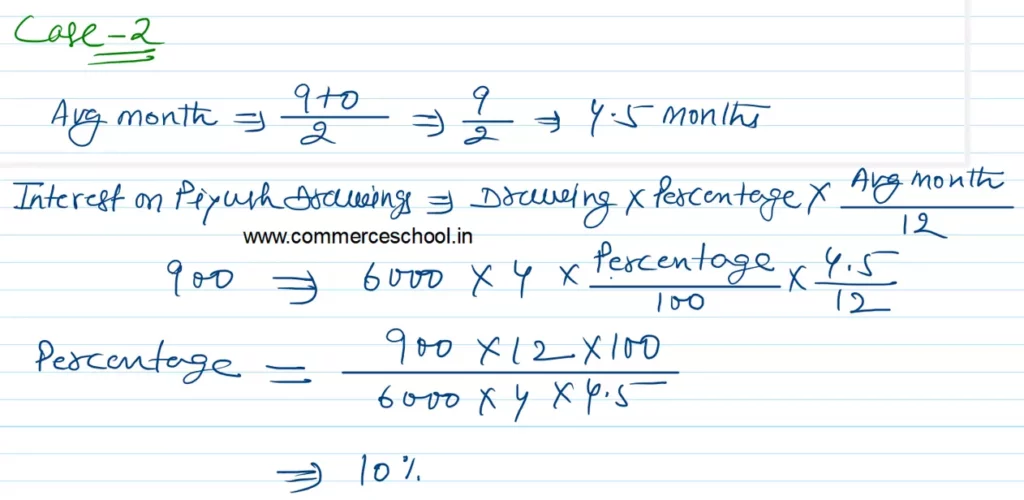 Case-2
Avg month ⇒ 9+0/2 ⇒ 9/2 ⇒ 4.5 months
Interest on Piyush Drawings ⇒ Drawing × Percentage × Avg month/12
www.commerceschool.in
900 ⇒ 6000 × 4 × Percentage/100 × 4.5/12
Percentage = 900 × 12 × 100/6000 × 4 × 4.5
⇒ 10%